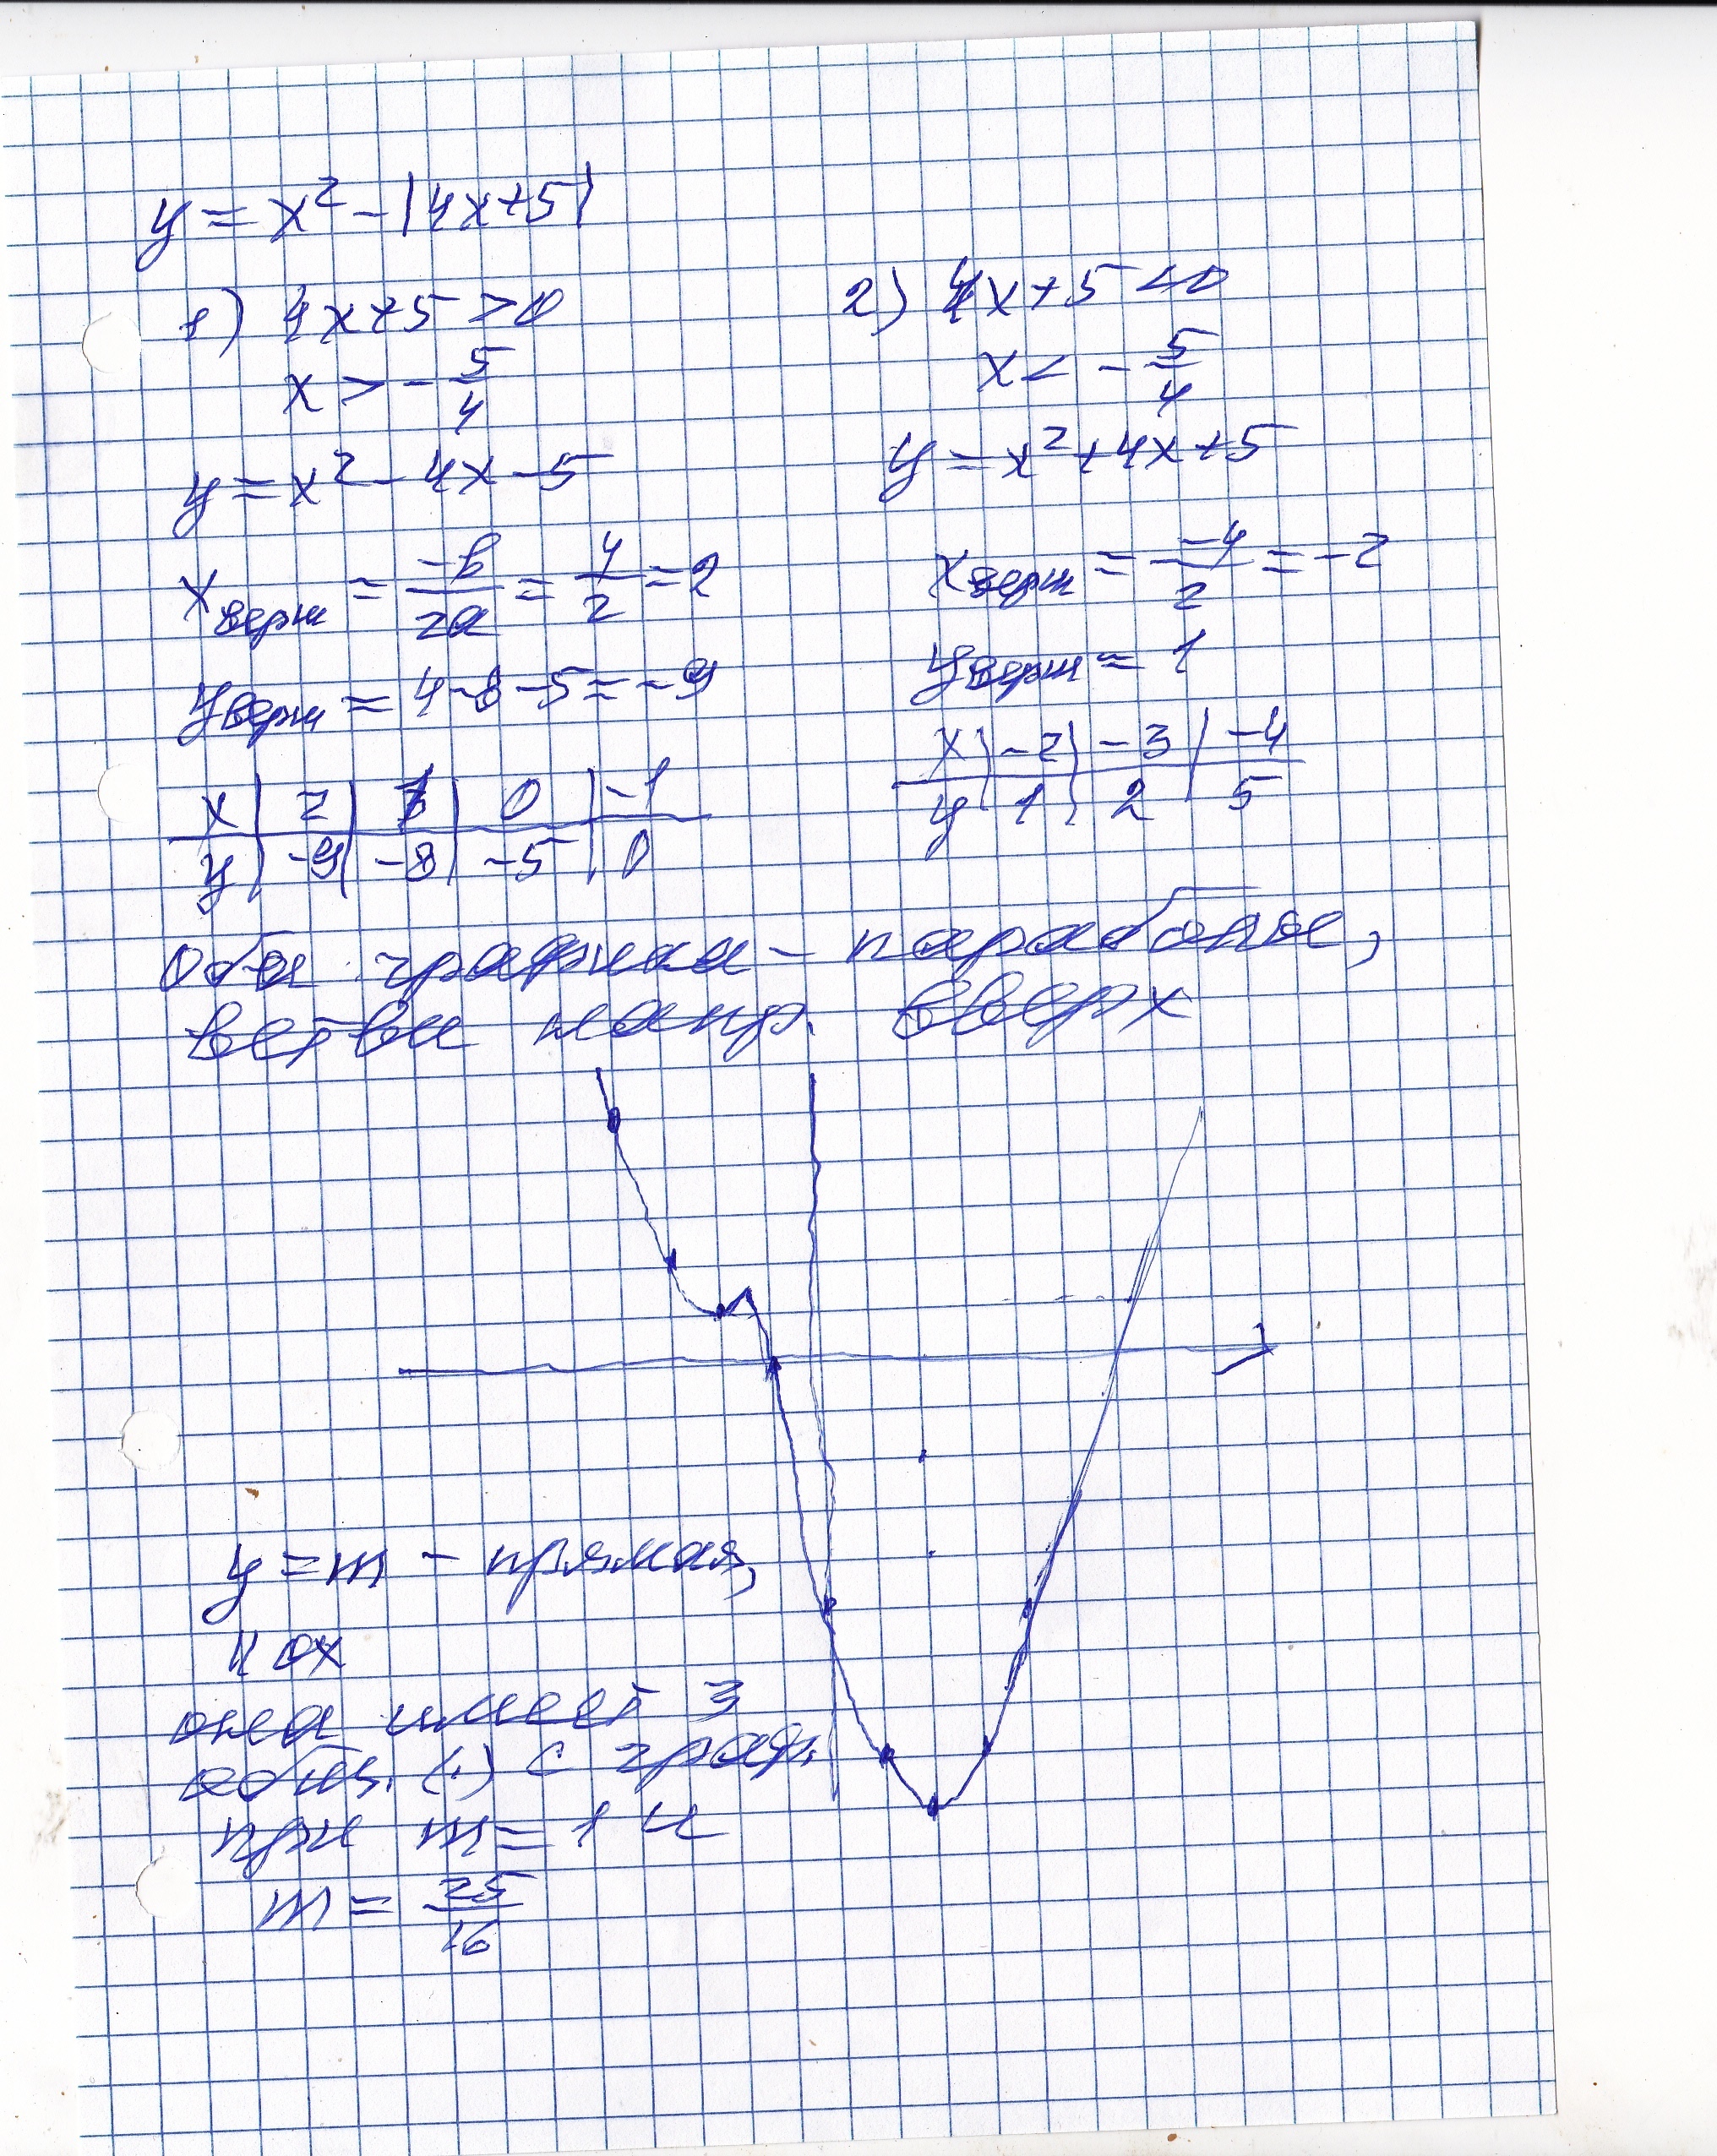 y = x² - |4x+5|
1) 4x+5 > 0
x > - 5/4
y = x² - 4x - 5
xверш = -b/2a = 4/2 = 2
yверш = 4-8-5 = -9
x | 2 | 1 | 0 | -1
y | -9 | -8 | -5 | 0
2) 4x+5 < 0
x < - 5/4
y = x²+4x+5
xверш = -4/2 = -2
yверш = 1
x | -2 | -3 | -4
y | 1 | 2 | 5
Оба графика - параболы,
ветви напр. вверх
y = m - прямая,
|| ox
она имеет 3
общ. (·) с граф.
при m = 1 и
m = 25/16